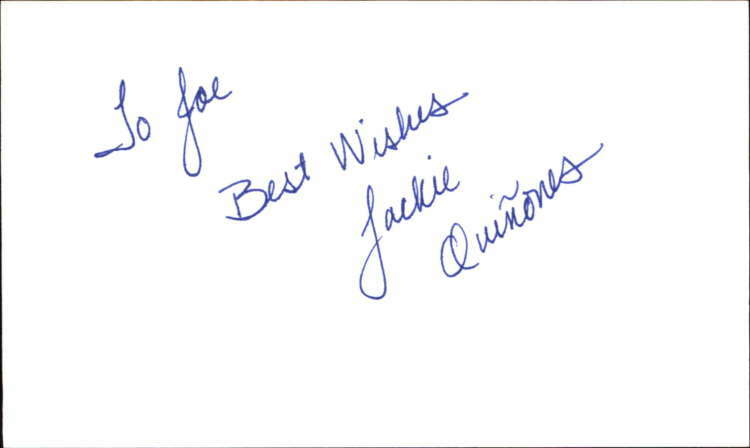 To Joe
Best Wishes
Jackie
Quiñones